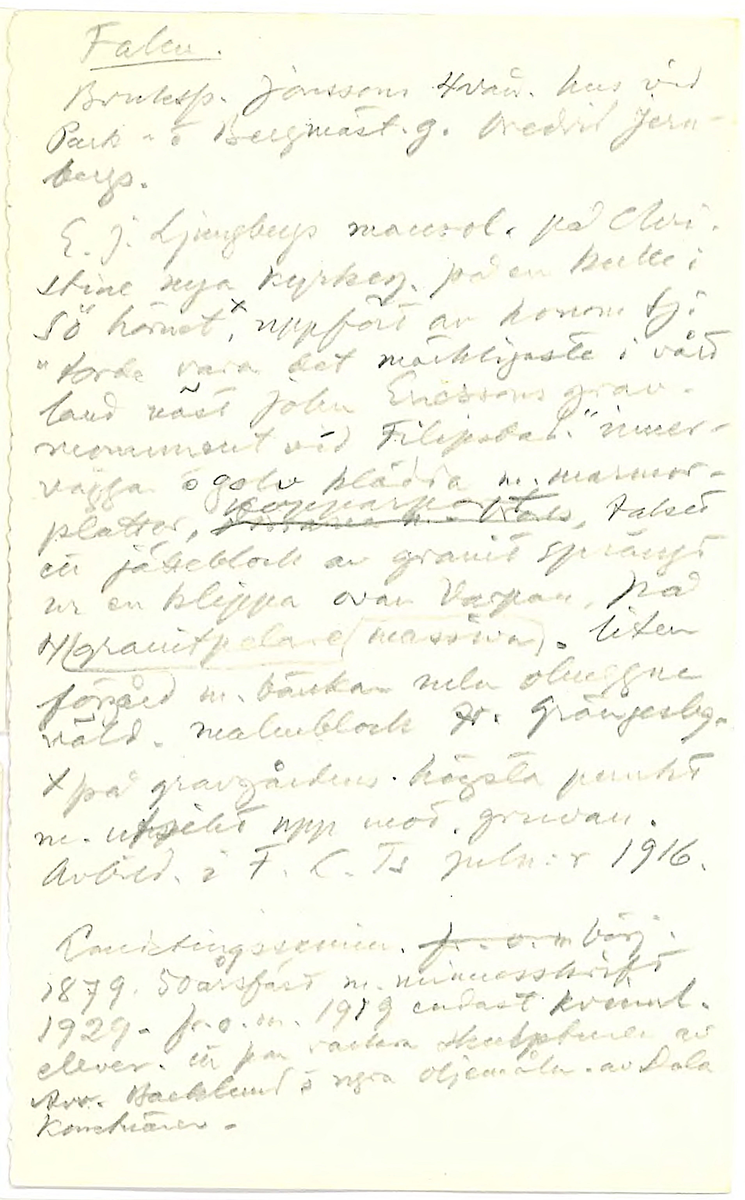 Falu.
Bruksp. Jonssons 4vån. hus vid
Park- o Bergmäst. g. bredvid Jern-
bergs.
E. J. Ljungbergs mausol. på Kri-
stine nya kyrkog. på en kulle i
SÖ hörnet,x uppfört av honom sj:
"torde vara det märkligaste i vårt
land näst John Ericssons grav-
monument vid Filipstad." inner-
vägga o golv klädda m. marmor-
plattor, kopparport, taket
ett jätteblock av granit sprängt
ur en klippa ovan Varpan, på
4 (granitpelare (massiva). liten
förgård m. bänkar
väld. malmblock fr. Grängesbg.
x på gravgårdens högsta punkt
m. utsikt upp mot gruvan.
Avbild. i F. C. Ts julnr 1916.
1879. 50årsfest m. minnesskrift
1929. fr. o. m. 1919 endast kvinnl.
elever. ett par vackra skulpturer av
Arv. Backlund o några oljemåln. av Dala
Konstnärer.